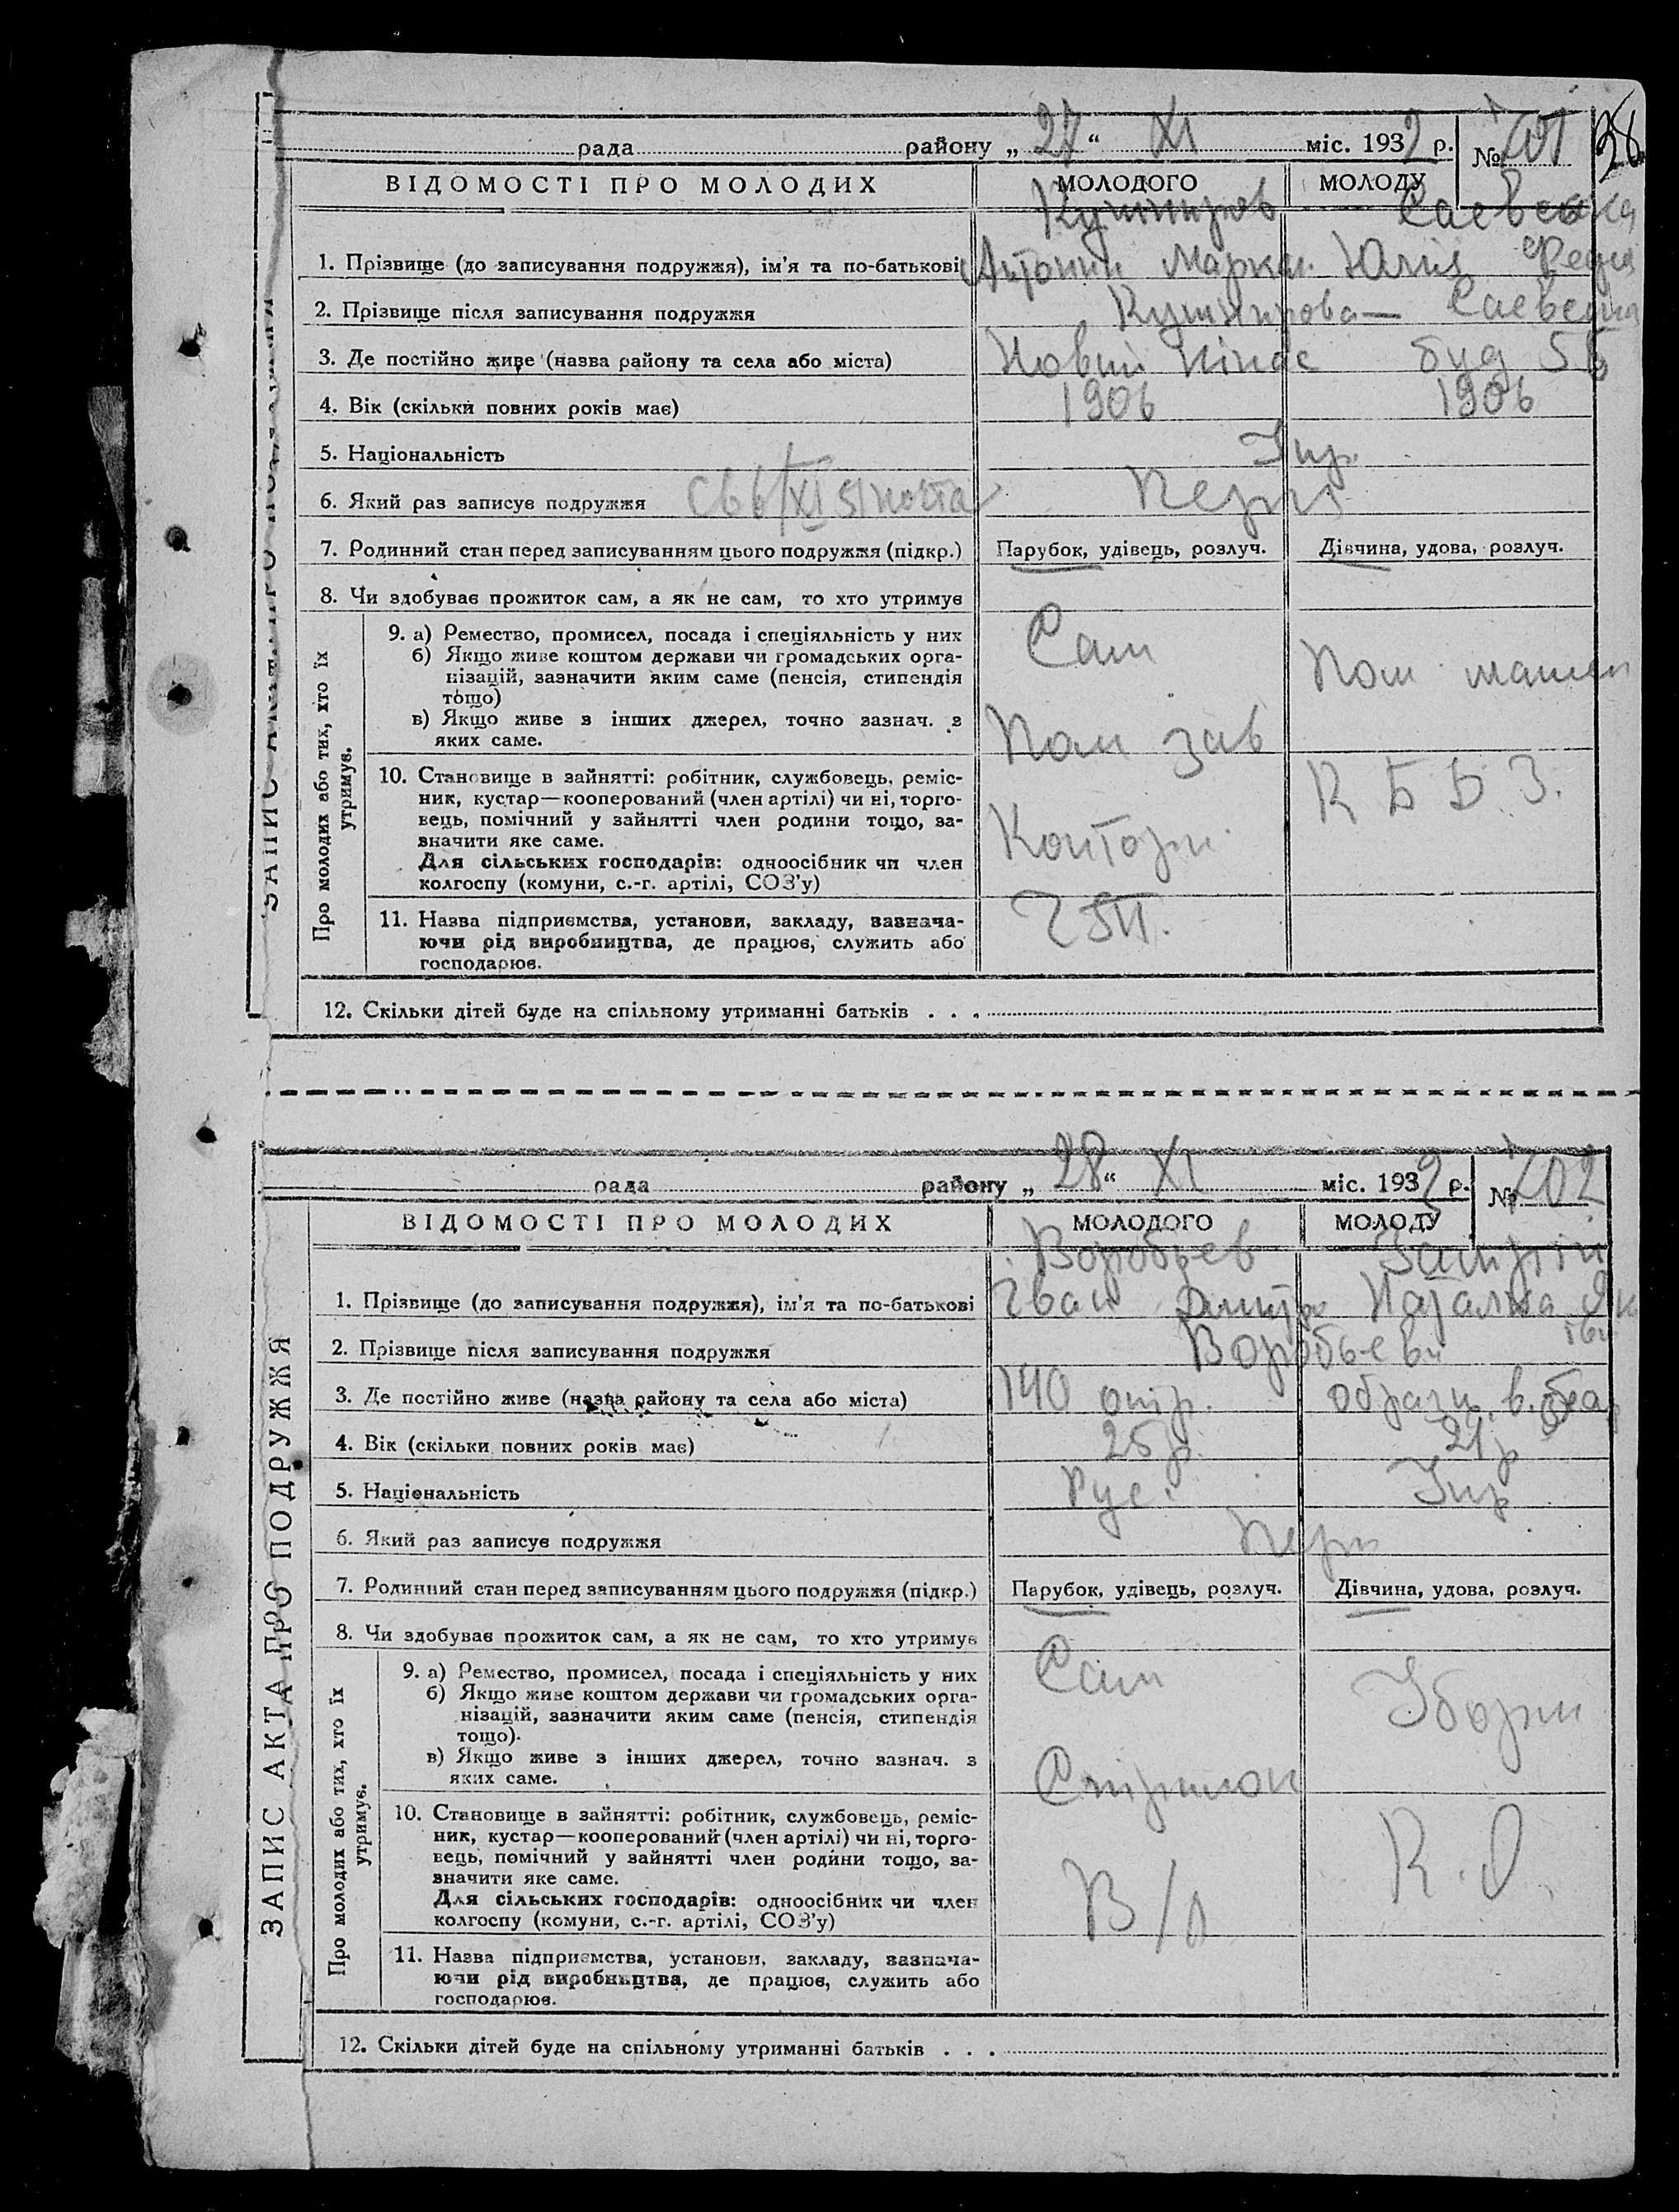 рада района „ 27 “ XI міс. 1932 р. № 38
ВІДОМОСТІ ПРО МОЛОДИХ МОЛОДОГО МОЛОДУ
Кушниров
1. Прізвище (до записування подружжя), ім'я та по-батькові Антонин Марков. Юлия
2. Прізвище після записування подружжя Кушнирова —
3. Де постійно живе (назва району та села або міста) Новый буд 5
4. Вік (скільки повних років має) 1906 1906
5. Національність Укр.
6. Який раз записує подружжя Перш
7. Родинний стан перед записуванням цього подружжя (підкр.) Парубок, удівець, розлуч. Дівчина, удова, розлуч.
8. Чи здобуває прожиток сам, а як не сам, то хто утримує
ЗАПИС АКТА ПРО ПОДРУЖЖЯ
Про молодих або тих, хто їх утримує.
9. а) Ремество, промисел, посада і спеціяльність у них Сам
б) Якщо живе коштом держави чи громадських орга-
нізацій, зазначити яким саме (пенсія, стипендія Пом
тощо)
в) Якщо живе з інших джерел, точно зазнач. з Пом зав
яких саме.
10. Становище в зайнятті: робітник, службовець, реміс- К Б Б З.
ник, кустар—кооперований (член артілі) чи ні, торго-
вець, помічний у зайнятті член родини тощо, за-
значити яке саме. Контори
Для сільських господарів: одноосібник чи член
колгоспу (комуни, с.-г. артілі, СОЗ'у)
11. Назва підприємства, установи, закладу, зазнача-
ючи рід виробництва, де працює, служить або
господарює.
12. Скільки дітей буде на спільному утриманні батьків . . .
рада району „ 28 “ XI міс. 1932 р. № 402
ВІДОМОСТІ ПРО МОЛОДИХ МОЛОДОГО МОЛОДУ
Воробьев
1. Прізвище (до записування подружжя), ім'я та по-батькові Іван Дмитр Наталка
2. Прізвище після записування подружжя Воробьеви
3. Де постійно живе (назва району та села або міста) 140
4. Вік (скільки повних років має) 25 р. 21 р
5. Національність Рус. Укр
6. Який раз записує подружжя Перш
7. Родинний стан перед записуванням цього подружжя (підкр.) Парубок, удівець, розлуч. Дівчина, удова, розлуч.
8. Чи здобуває прожиток сам, а як не сам, то хто утримує
ЗАПИС АКТА ПРО ПОДРУЖЖЯ
Про молодих або тих, хто їх утримує.
9. а) Ремество, промисел, посада і спеціяльність у них Сам
б) Якщо живе коштом держави чи громадських орга- Уборщ
нізацій, зазначити яким саме (пенсія, стипендія
тощо).
в) Якщо живе з інших джерел, точно зазнач. з
яких саме.
10. Становище в зайнятті: робітник, службовець, реміс-
ник, кустар—кооперований (член артілі) чи ні, торго-
вець, помічний у зайнятті член родини тощо, за-
значити яке саме. К. О.
Для сільських господарів: одноосібник чи член
колгоспу (комуни, с.-г. артілі, СОЗ'у)
11. Назва підприємства, установи, закладу, зазнача-
ючи рід виробництва, де працює, служить або
господарює.
12. Скільки дітей буде на спільному утриманні батьків . . .